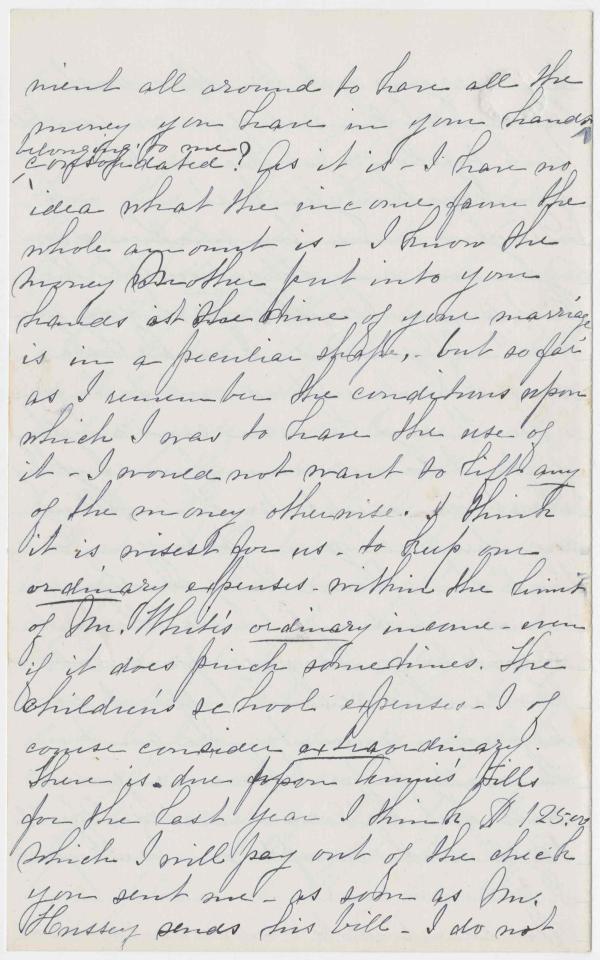 ment all around to have all the
money you have in your hands
belonging to me
consolidated? As it is - I have no
idea what the income from the
whole amount is - I know the
money Mother put into your
hands at the time of your marriage
is in a peculiar shape, - but so far
as I remember the conditions upon
which I was to have the use of
it - I would not want to lift any
of the money otherwise. I think
it is wisest for us - to keep our
ordinary expenses - within the limit
of Mr. White's ordinary income - even
if it does pinch sometimes. The
children's school expenses - I of
course consider extraordinary.
There is due upon Annie's bills
for the last year I think $125.00
which I will pay out of the check
you sent me - as soon as Mr.
Hussey sends his bill - I do not